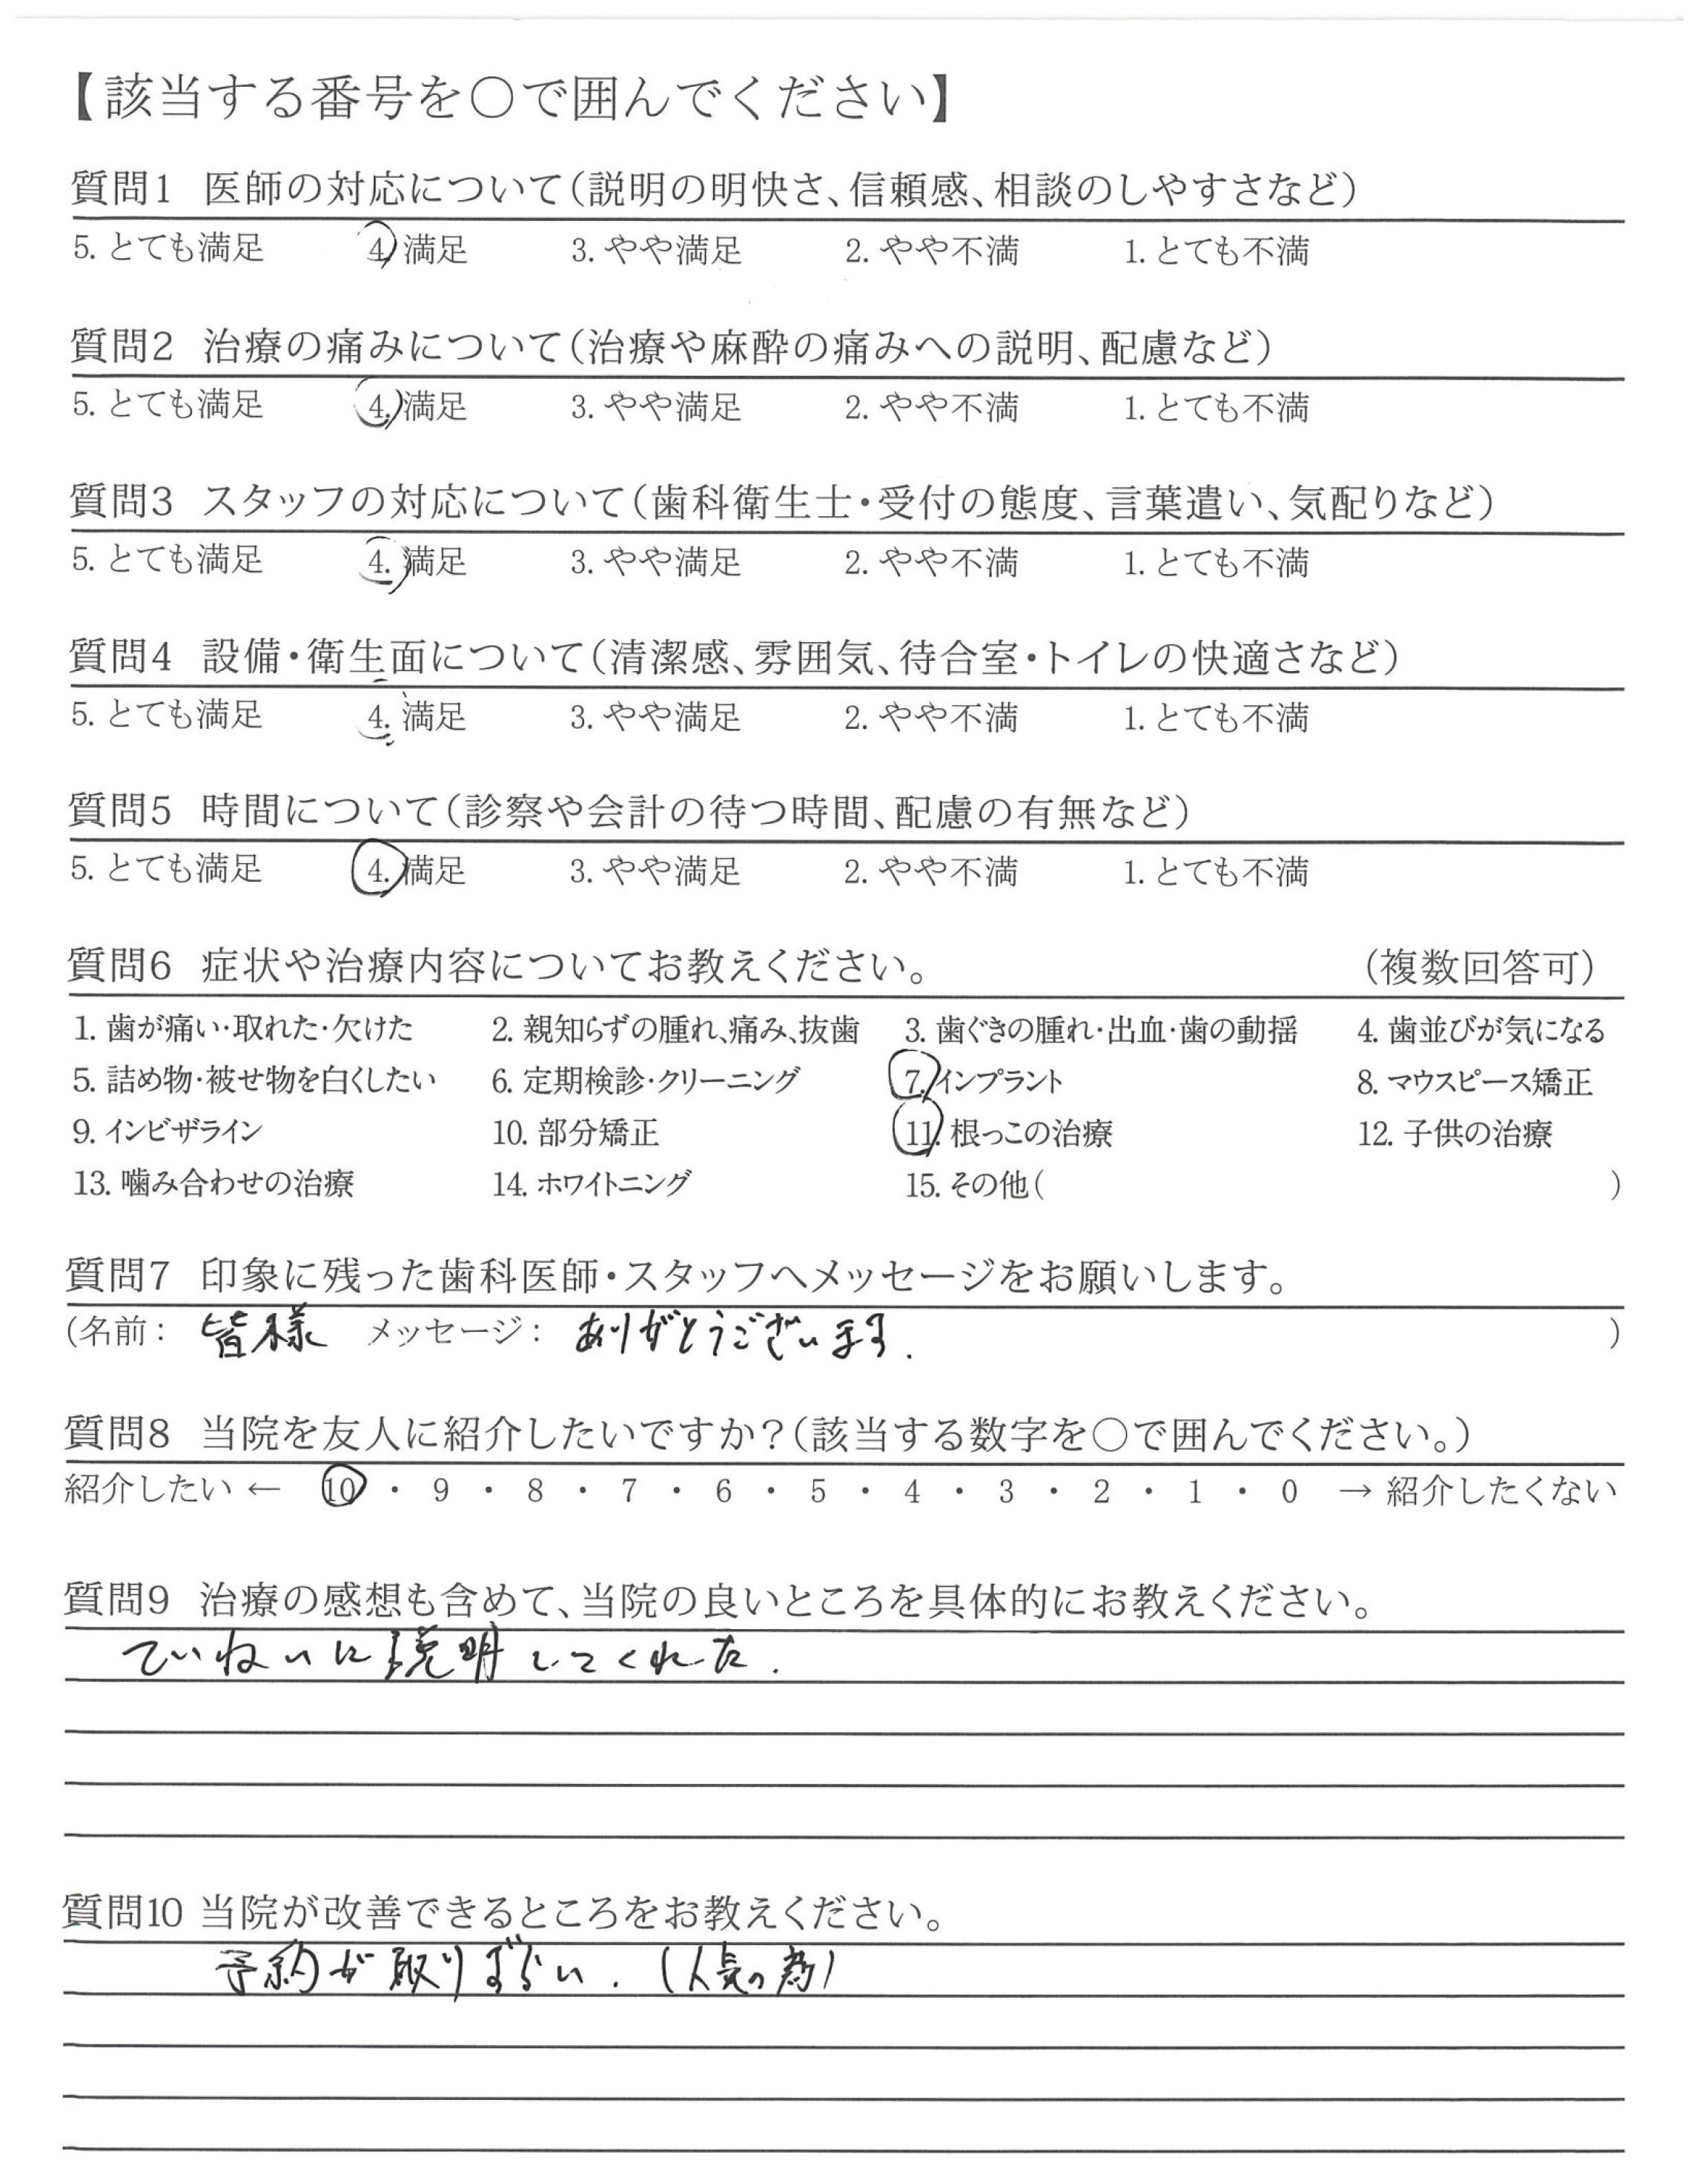 【該当する番号を〇で囲んでください】
質問1 医師の対応について（説明の明快さ、信頼感、相談のしやすさなど）
5. とても満足 4. 満足 3. やや満足 2. やや不満 1. とても不満
質問2 治療の痛みについて（治療や麻酔の痛みへの説明、配慮など）
5. とても満足 4. 満足 3. やや満足 2. やや不満 1. とても不満
質問3 スタッフの対応について（歯科衛生士・受付の態度、言葉遣い、気配りなど）
5. とても満足 4. 満足 3. やや満足 2. やや不満 1. とても不満
質問4 設備・衛生面について（清潔感、雰囲気、待合室・トイレの快適さなど）
5. とても満足 4. 満足 3. やや満足 2. やや不満 1. とても不満
質問5 時間について（診察や会計の待つ時間、配慮の有無など）
5. とても満足 4. 満足 3. やや満足 2. やや不満 1. とても不満
質問6 症状や治療内容についてお教えください。 （複数回答可）
1. 歯が痛い・取れた・欠けた 2. 親知らずの腫れ、痛み、抜歯 3. 歯ぐきの腫れ・出血・歯の動揺 4. 歯並びが気になる
5. 詰め物・被せ物を白くしたい 6. 定期検診・クリーニング 7. インプラント 8. マウスピース矯正
9. インビザライン 10. 部分矯正 11. 根っこの治療 12. 子供の治療
13. 噛み合わせの治療 14. ホワイトニング 15. その他（ ）
質問7 印象に残った歯科医師・スタッフへメッセージをお願いします。
（名前： 皆様 メッセージ： ありがとうございます. ）
質問8 当院を友人に紹介したいですか？（該当する数字を〇で囲んでください。）
紹介したい ← 10 ・ 9 ・ 8 ・ 7 ・ 6 ・ 5 ・ 4 ・ 3 ・ 2 ・ 1 ・ 0 → 紹介したくない
質問9 治療の感想も含めて、当院の良いところを具体的にお教えください。
ていねいに説明してくれた.
質問10 当院が改善できるところをお教えください。
予約が取りずらい. (人気の為)